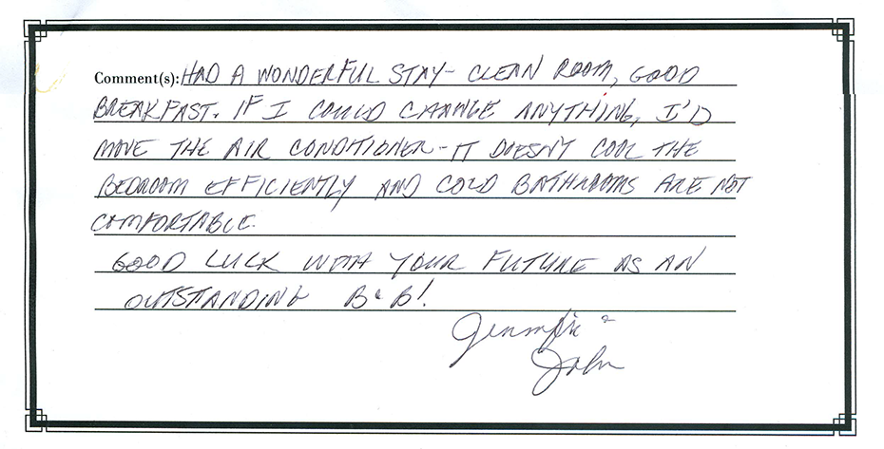 Comment(s): HAD A WONDERFUL STAY - CLEAN ROOM, GOOD
BREAKFAST. IF I COULD CHANGE ANYTHING, I'D
MOVE THE AIR CONDITIONER - IT DOESN'T COOL THE
BEDROOM EFFICIENTLY AND COLD BATHROOMS ARE NOT
COMFORTABLE.
GOOD LUCK WITH YOUR FUTURE AS AN
OUTSTANDING B&B!
Jennifer &
John